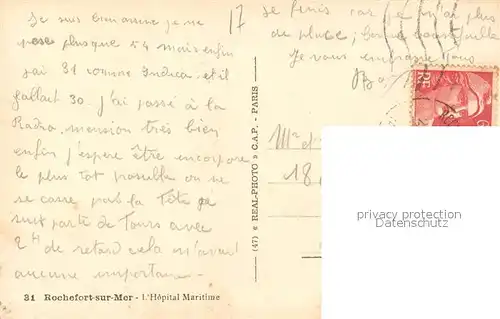 17
Je suis bien arrivé je ne
pese plus que 54 mais enfin
j'ai 31 comme Indice et il
fallait 30. J'ai passé à la
Radio, mension très bien
enfin j'espere être incorpore
le plus tot possible on ne
se casse pas la Tête je
suis parti de Tours avec
2H de retard cela n'avait
aucune importance -
31 Rochefort-sur-Mer - L'Hôpital Maritime
(47) « REAL-PHOTO » C.A.P. - PARIS
Je finis car je n'ai plus
de place,
Je vous embrasse Tous
Mr et
18
privacy protection
Datenschutz